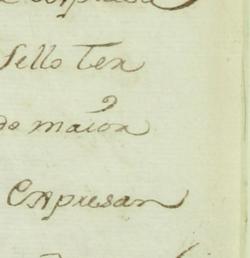 Sello Ter
do maior
Expresan